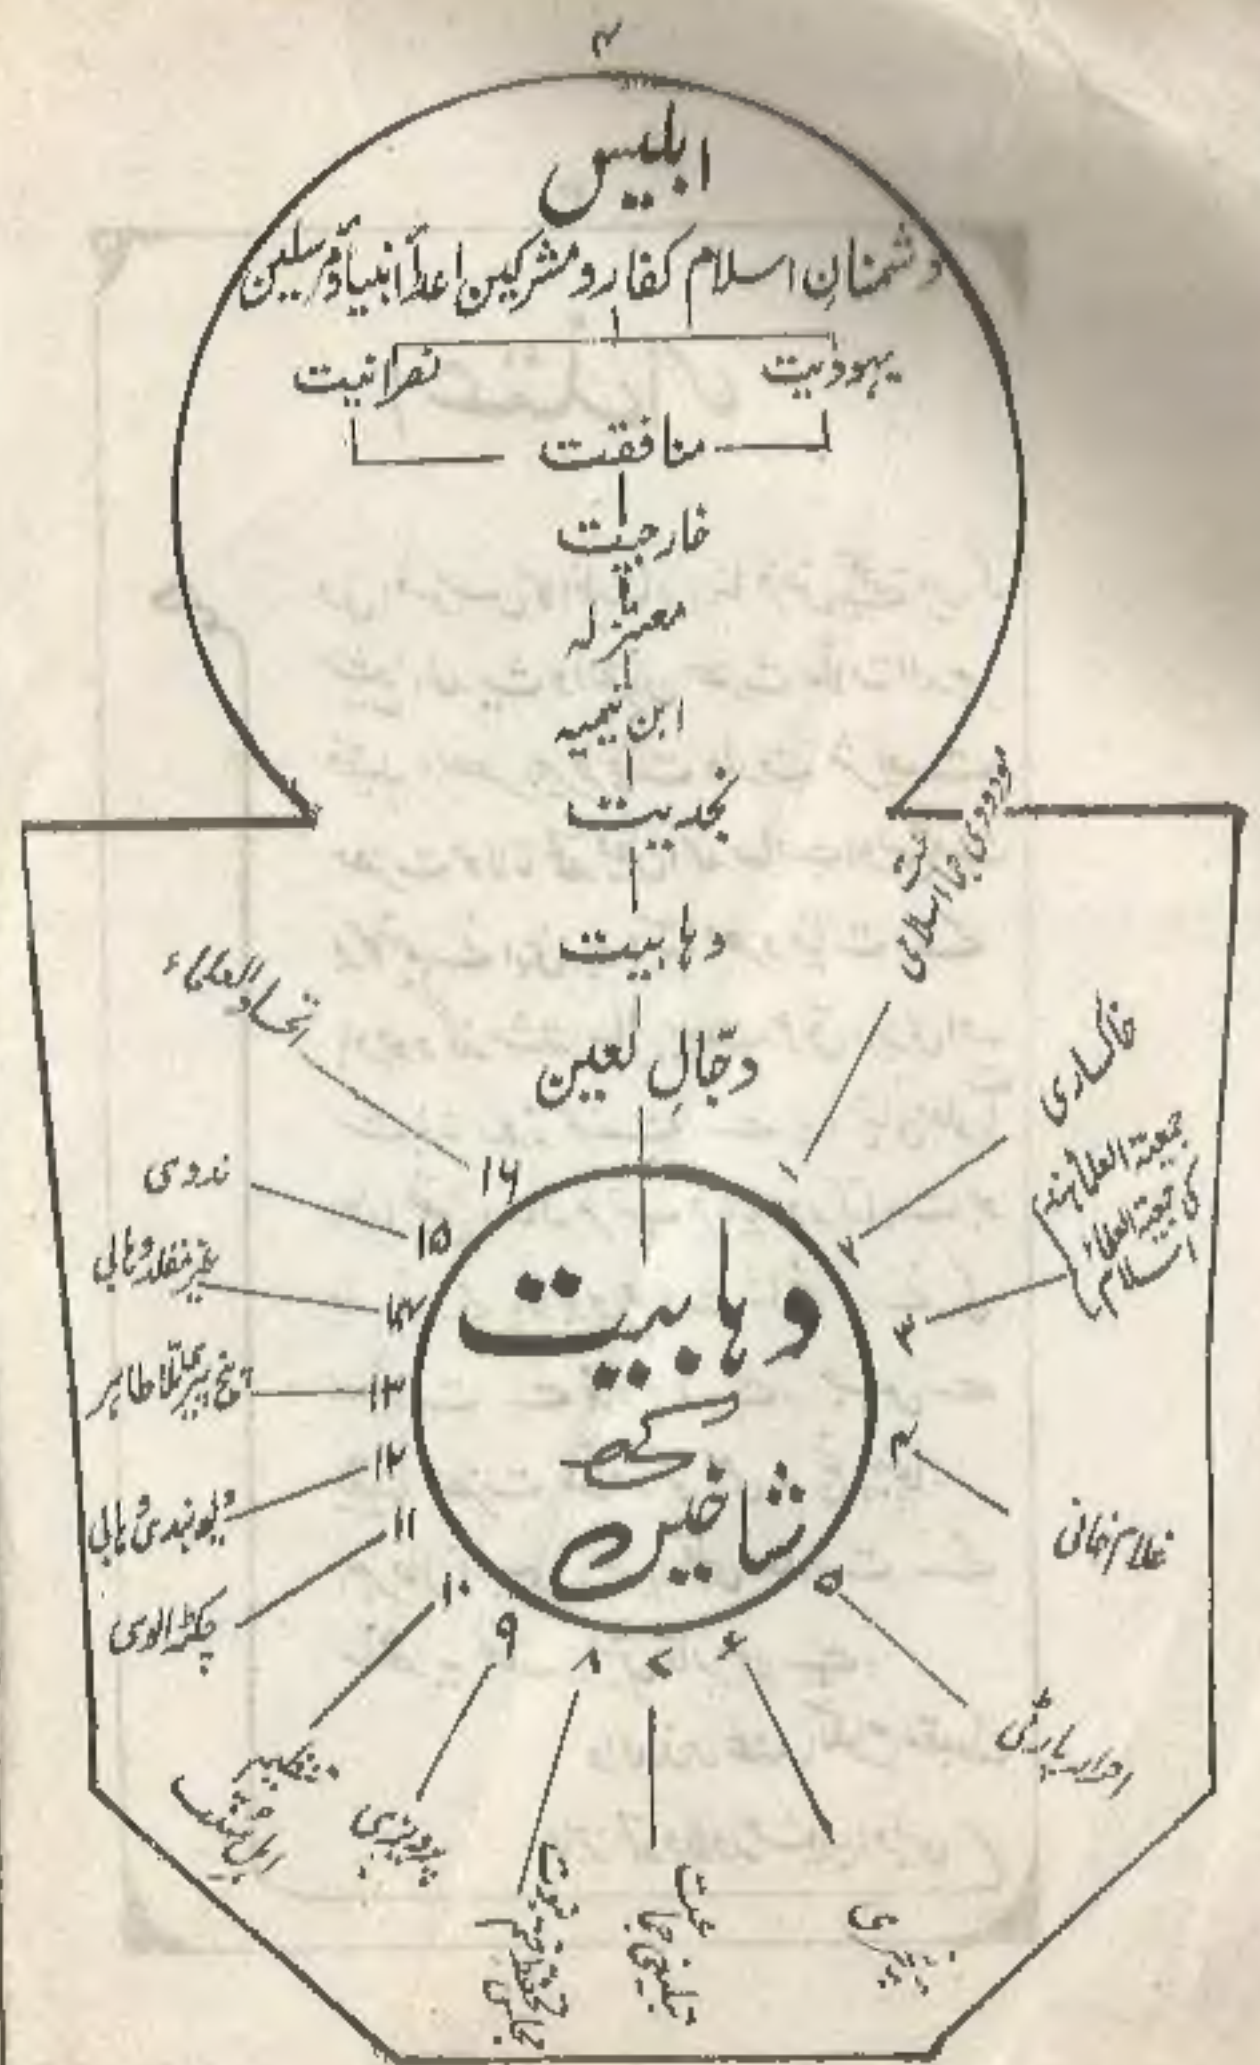 ۴
ابلیس
دشمنانِ اسلام کفار و مشرکین اعدأ انبیأ و مرسلین
یہودیت
نصرانیت
منافقت
خارجیت
معتزلہ
ابن تیمیہ
نجدیت
وہابیت
دجّالِ لعین
وہابیت
کی
شاخیں
۱
مودودی جماعت اسلامی
۲
خاکساری
۳
جمعیۃ العلمأ ہند
کی جمعیۃ العلماء
اسلام
۴
غلام خانی
۵
احرار پارٹی
۶
نیچری
۷
تبلیغی جماعت
۸
مجلس تحفظ ختم نبوت
۹
پرویزی
۱۰
تنظیم
اہل سنت
۱۱
چکڑالوی
۱۲
دیوبندی وہابی
۱۳
پنج پیر ملّا طاہر
۱۴
غیر مقلد وہابی
۱۵
ندوی
۱۶
اتحاد العلماء